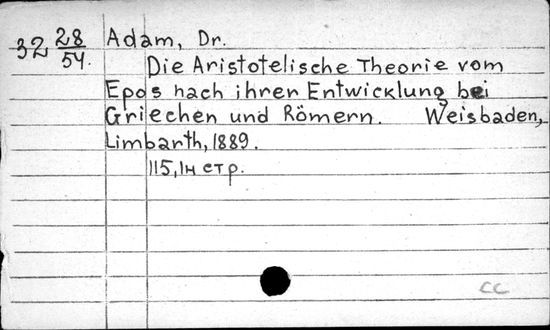 32 28/54. Adam, Dr.
Die Aristotelische Theorie vom
Epos nach ihren Entwicklung bei
Griechen und Römern. Weisbaden,
Limbarth, 1889.
115, 1н стр.
CC